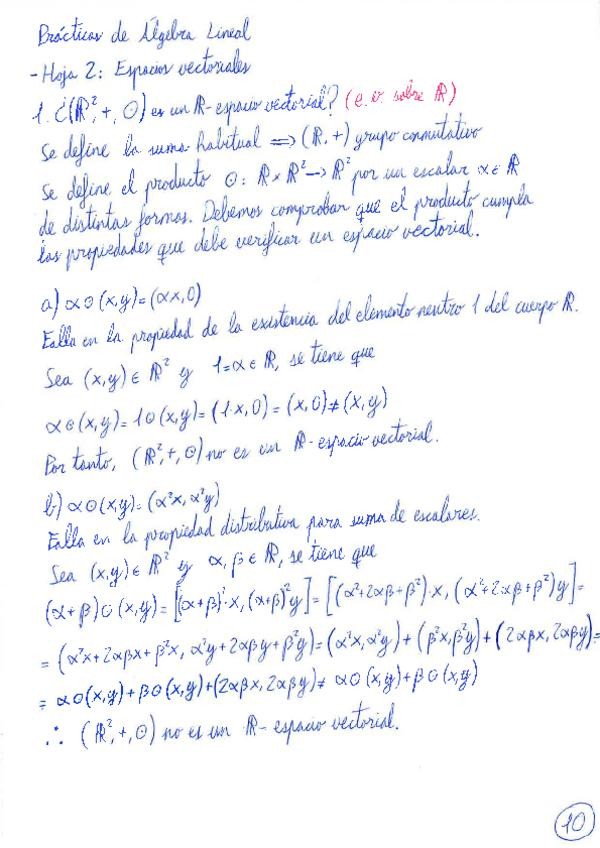 Prácticas de Álgebra Lineal
- Hoja 2: Espacios vectoriales
1. ¿(ℝ², +, ⊙) es un ℝ-espacio vectorial? (e.v. sobre ℝ)
Se define la suma habitual ⟹ (ℝ, +) grupo conmutativo
Se define el producto ⊙: ℝ × ℝ² → ℝ² por un escalar α ∈ ℝ
de distintas formas. Debemos comprobar que el producto cumpla
las propiedades que debe verificar un espacio vectorial.
a) α⊙(x,y)=(αx,0)
Falla en la propiedad de la existencia del elemento neutro 1 del cuerpo ℝ.
Sea (x,y) ∈ ℝ² y 1=α ∈ ℝ, se tiene que
α⊙(x,y)=1⊙(x,y)=(1·x,0)=(x,0)≠(x,y)
Por tanto, (ℝ²,+,⊙) no es un ℝ-espacio vectorial.
b) α⊙(x,y)=(α²x, α²y)
Falla en la propiedad distributiva para suma de escalares.
Sea (x,y) ∈ ℝ² y α, β ∈ ℝ, se tiene que
(α+β)⊙(x,y)=[(α+β)²·x,(α+β)²y]=[(α²+2αβ+β²)·x, (α²+2αβ+β²)y]=
=(α²x+2αβx+β²x, α²y+2αβy+β²y)=(α²x,α²y)+(β²x,β²y)+(2αβx,2αβy)=
= α⊙(x,y)+β⊙(x,y)+(2αβx,2αβy)≠ α⊙(x,y)+β⊙(x,y)
∴ (ℝ²,+,⊙) no es un ℝ-espacio vectorial.
10